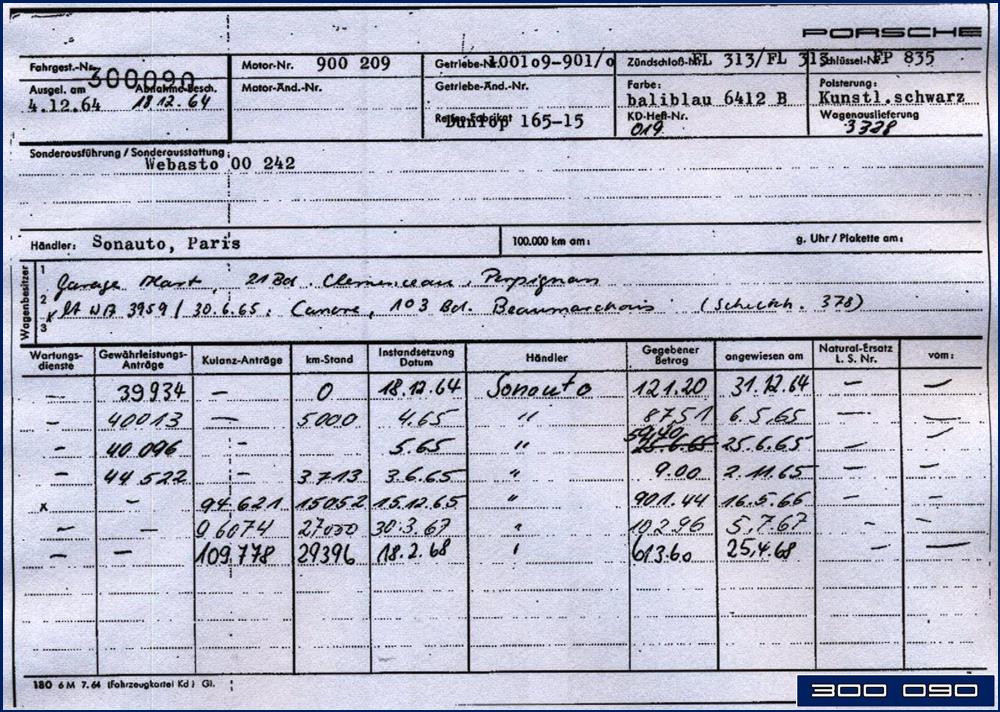 PORSCHE
Fahrgest.-Nr. 300090 Motor-Nr. 900 209 Getriebe-Nr. 100109-901/0 Zündschloß-Nr. FL 313/FL 313 Schlüssel-Nr. FP 835
Ausgel. am 4.12.64 Abnahme-Besch. 18.12.64 Motor-Änd.-Nr. Getriebe-Änd.-Nr. Farbe: baliblau 6412 B Polsterung: Kunstl.schwarz
Reifen-Fabrikat Dunlop 165-15 KD-Heft-Nr. 019 Wagenauslieferung 3328
Sonderausführung / Sonderausstattung:
Webasto 00 242
Händler: Sonauto, Paris 100.000 km am: g. Uhr / Plakette am:
Wagenbesitzer
1 Garage 21 Bd. Clemenceau, Perpignan
2 lt WA 3959 / 30.6.65: 103 Bd. Beaumarchais (Scheckh. 378)
3
Wartungsdienste Gewährleistungs-Anträge Kulanz-Anträge km-Stand Instandsetzung Datum Händler Gegebener Betrag angewiesen am Natural-Ersatz L. S. Nr. vom:
— 39934 — 0 18.12.64 Sonauto 121.20 31.12.64 — —
- 40013 — 5000 4.65 " 87.51 6.5.65 — —
- 40 096 - 5.65 " 59,40 25.6.65 25.6.65 — —
- 44 522 - 3713 3.6.65 " 9.00 2.11.65 — —
x - 94 621 15052 15.12.65 " 901.44 16.5.66 - -
— — 96074 27000 30.3.67 " 102.96 5.7.67 - -
— — 109.778 29396 18.2.68 " 613.60 25.4.68 — —
180 6 M 7. 64 (Fahrzeugkartei Kd) Gl.
300 090